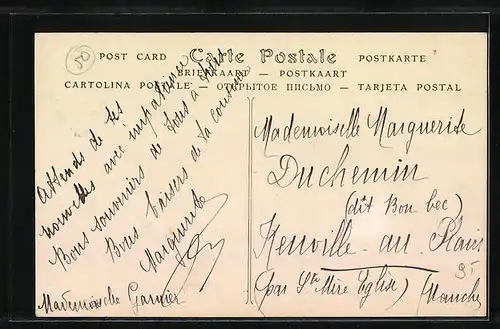 50
POST CARD Carte Postale POSTKARTE
BRIEFKAART — POSTKAART
CARTOLINA POSTALE — ОТКРЫТОЕ ПИСЬМО — TARJETA POSTAL
Attends de tes
nouvelles avec impatience
Bons souvenirs de tous a tous
Bons baisers de ta cousine
Marguerite
Mademoiselle Garnier
Mademoiselle Marguerite
Duchemin
(dit Bon bec)
Neuville-au-Plain
(par Ste Mère Eglise) (Manche)